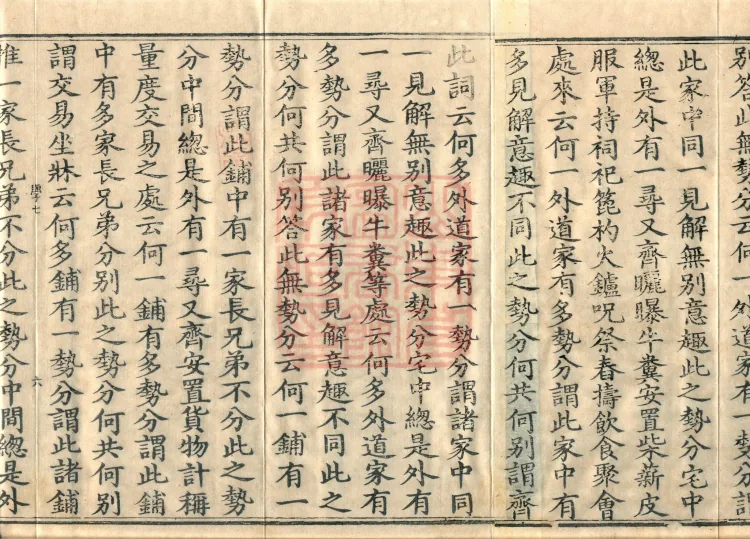 別答此無勢分云何一外道家有一勢分謂
此家中同一見解無別意趣此之勢分宅中
總是外有一尋又齊曬曝牛糞安置柴薪皮
服軍持祠祀箆杓火鑪呪祭舂擣飲食聚會
處來云何一外道家有多勢分謂此家中有
多見解意趣不同此之勢分何共何別謂齊
此詞云何多外道家有一勢分謂諸家中同
一見解無別意趣此之勢分宅中總是外有
一尋又齊曬曝牛糞等處云何多外道家有
多勢分謂此諸家有多見解意趣不同此之
勢分何共何別答此無勢分云何一鋪有一
勢分謂此鋪中有一家長兄弟不分此之勢
分中間總是外有一尋又齊安置貨物計稱
量度交易之處云何一鋪有多勢分謂此鋪
中有多家長兄弟分別此之勢分何共何別
謂交易坐牀云何多鋪有一勢分謂此諸鋪
六
惟一家長兄弟不分此之勢分中間總是外